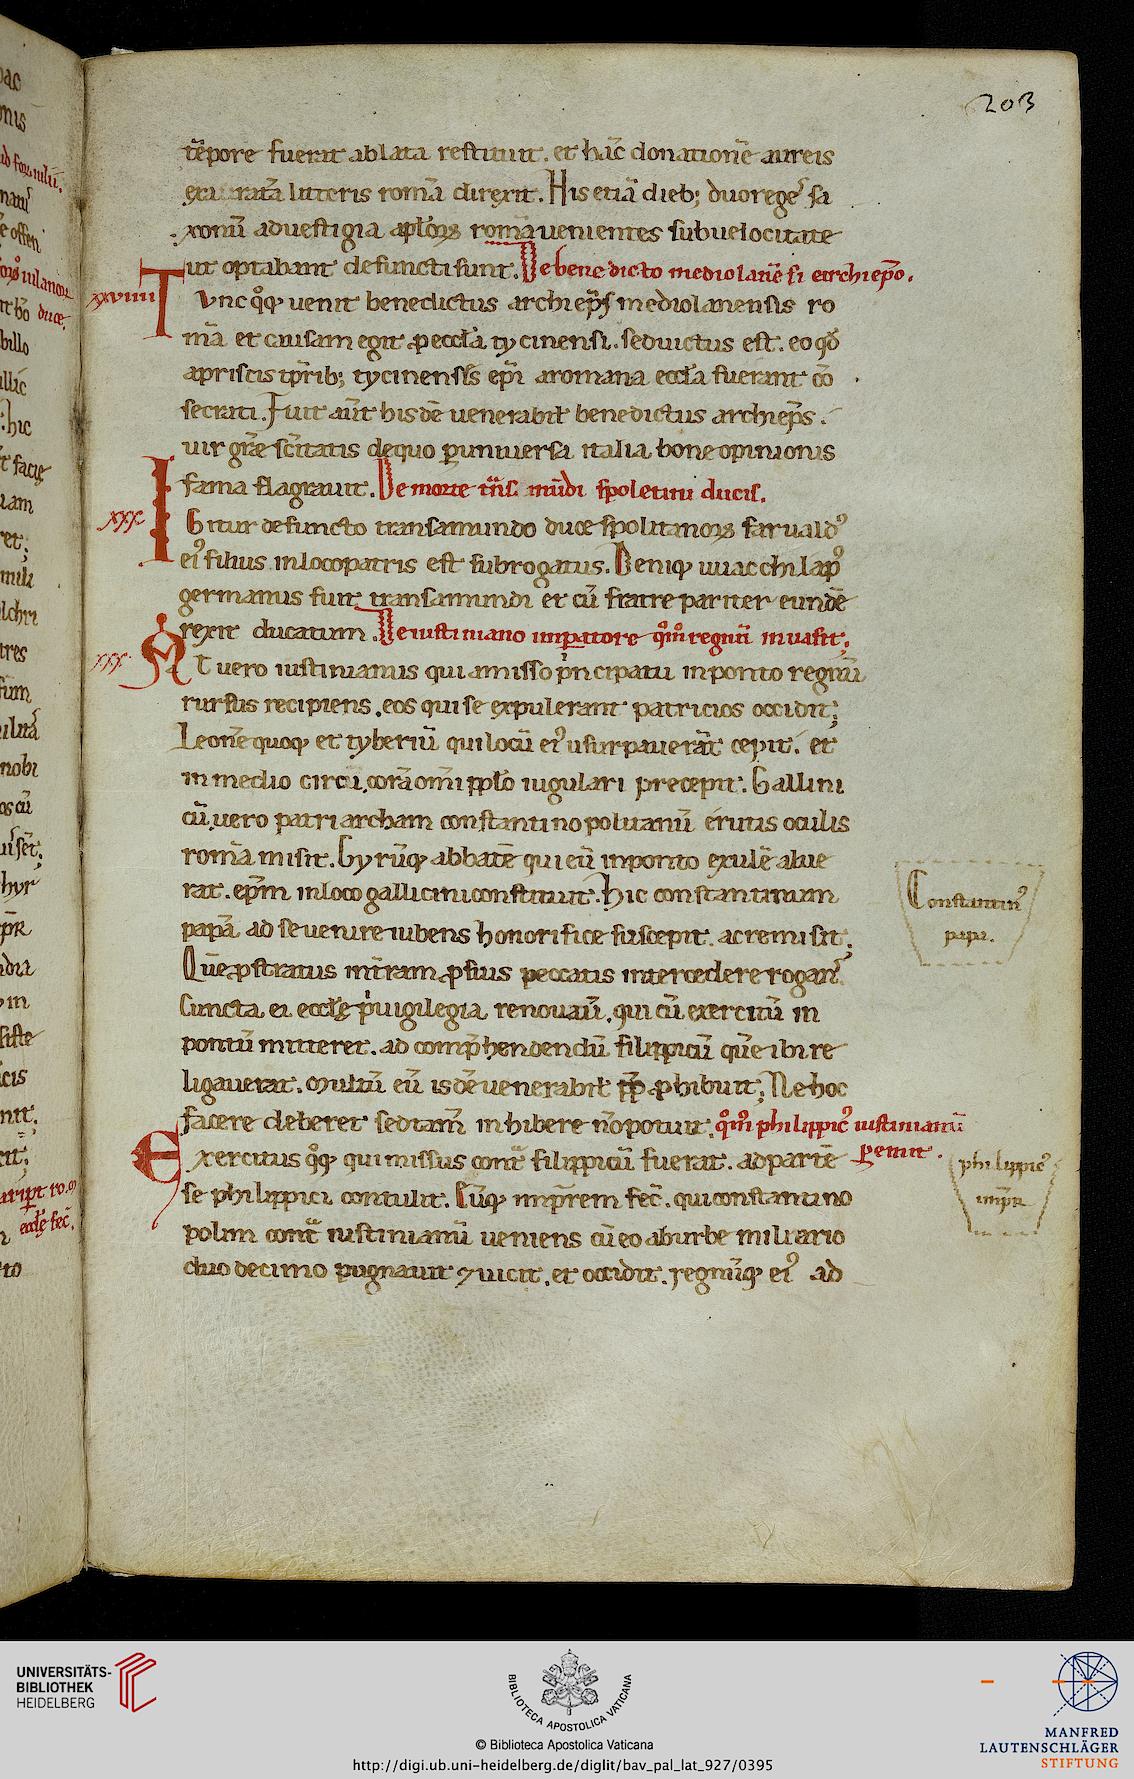 203
tẽpore fuerat ablata restituit. et hãc donationẽ aureis
exaratã litteris romã direxit. His etiã dieb; duo regeˢ sa
xonũ ad uestigia apl̃oꝝ romã uenientes sub uelocitate
ut optabant defuncti sunt. De benedicto mediolanẽsi archiep̃o.
xxviiii Tunc qͦq; uenit benedictus archiep̃s mediolanensis ro
mã et causam egit ꝓ eccl̃a tycinensi. sed uictus est. eo qđ
a priscis tp̃rib; tycinensis ep̃i a romana eccl̃a fuerant cõ
secrati. Fuit aũt hisdẽ uenerabił benedictus archiep̃s.
uir gr̃æ sc̃itatis de quo ꝑ uniuersa italia bone opinionis
fama flagrauit. De morte trãsmũdi spoletini ducis.
xxx Igitur defuncto transamundo duce spolitanoꝝ faruald᾽
ei᾽ filius in loco patris est subrogatus. Deniq; uuacchilap᾽
germanus fuit transamundi et cũ fratre pariter eundẽ
rexit ducatum. De iustiniano imꝑatore qm̃ regnũ inuasit.
xxx At uero iustinianus qui amisso pͥncipatu in ponto regnũ
rursus recipiens. eos qui se expulerant patricios occidit;
Leonẽ quoq; et tyberiũ qui locũ ei᾽ usurpauerãt cepit. et
in medio circũ, corã om̃i ppl̃o iugulari precepit. Gallini
cũ, uero patriarcham constantinopolitanũ erutis oculis
romã misit. Cyrũq; abbatẽ qui eũ in ponto exulẽ alue
rat. ep̃m in loco gallicini constituit. Hic constantinum
papã ad se uenire iubens honorifice suscepit. ac remisit;
Quẽ ꝓstratus in terram ꝓ suis peccatis intercedere roganˢ
Cuncta ei eccl̃ę pͥuigilegia renouauit. qui cũ exercitũ in
pontũ mitteret. ad comp̃hendendũ filippicũ quẽ ibi re
ligauerat. multũ eũ isdẽ uenerabił pp̃ ꝓhibuit; Ne hoc
facere deberet sed tam̃ inhibere ñ potuit; qm̃ philippic᾽ iustinianũ
ꝑemit.
Exercitus qͦq; qui missus contͣ filippicũ fuerat. ad partẽ
se philippici contulit. Eũq; imp̃rem fec̃. qui constantino
polim contͣ iustinianũ ueniens cũ eo ab urbe miliario
duodecimo pugnauit ⁊ uicit. et occidit. regnũq; ei᾽ ad
Constantin᾽
papa.
philippic᾽
imp̃r
UNIVERSITÄTS-
BIBLIOTHEK
HEIDELBERG
BIBLIOTECA APOSTOLICA VATICANA
© Biblioteca Apostolica Vaticana
http://digi.ub.uni-heidelberg.de/diglit/bav_pal_lat_927/0395
MANFRED
LAUTENSCHLÄGER
STIFTUNG